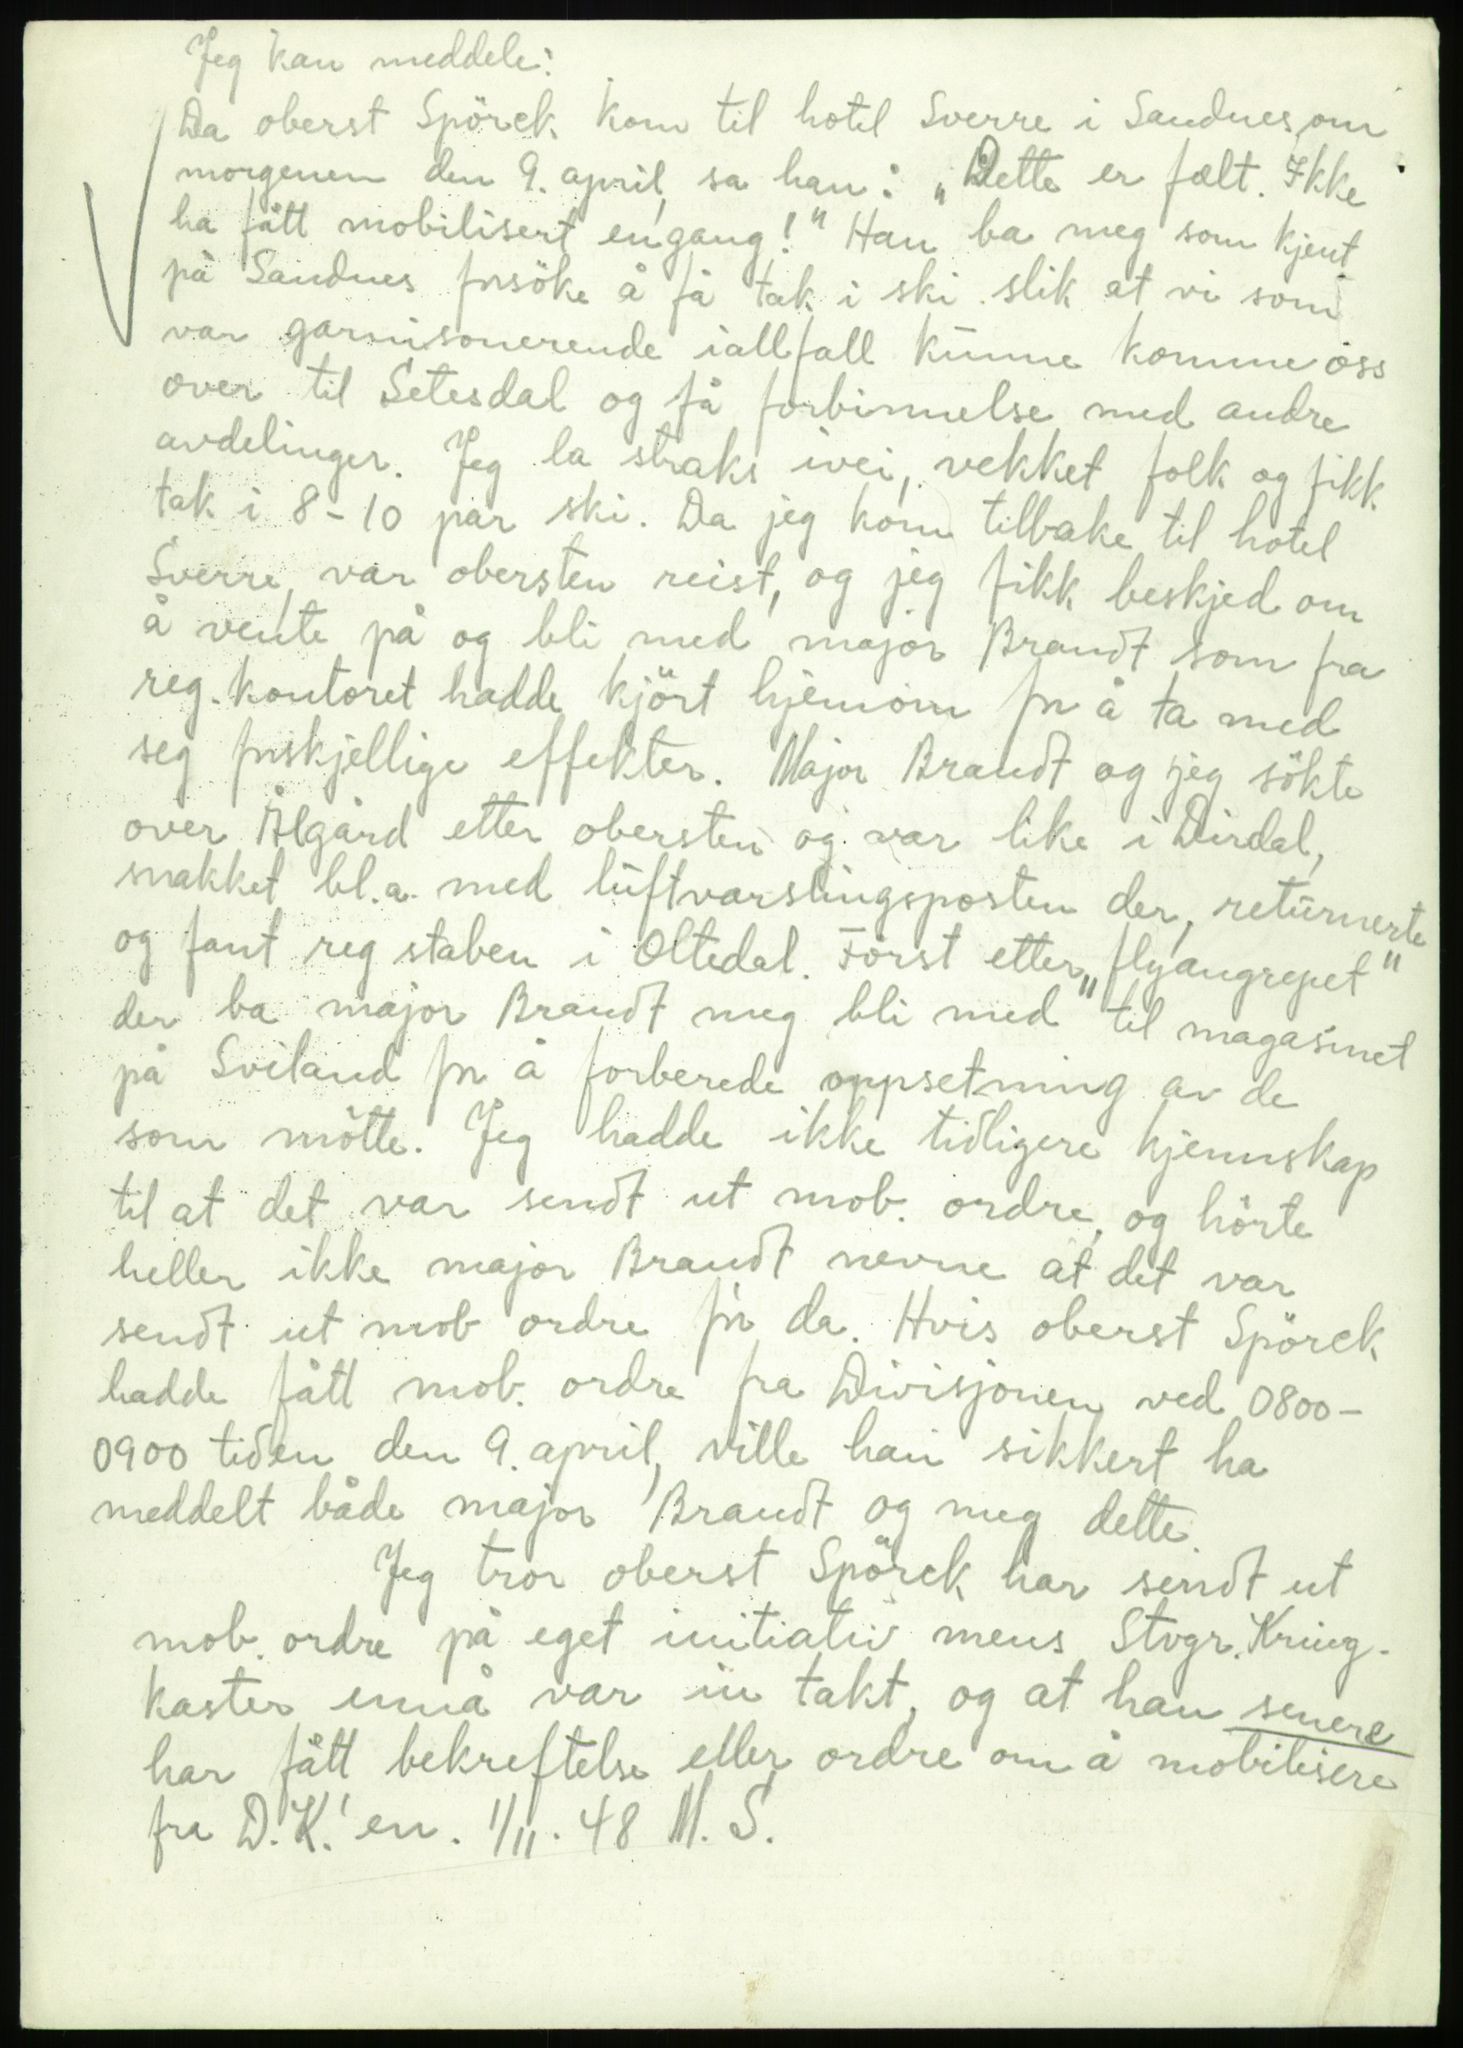 Jeg kan meddele:
Da oberst Spörck kom til hotel Sverre i Sandnes om
morgenen den 9. april, sa han: „Dette er fælt. Ikke
ha fått mobilisert engang!" Han ba meg som kjent
på Sandnes forsöke å få tak i ski slik at vi som
var garnisonerende iallfall kunne komme oss
over til Setesdal og få forbinnelse med andre
avdelinger. Jeg la straks ivei, vekket folk og fikk
tak i 8-10 par ski. Da jeg kom tilbake til hotel
Sverre, var obersten reist, og jeg fikk beskjed om
å vente på og bli med major Brandt som fra
reg. kontoret hadde kjört hjemom for å ta med
seg forskjellige effekter. Major Brandt og jeg sökte
over Ålgård etter obersten og var like i Dirdal,
snakket bl.a. med luftvarslingsposten der, returnerte
og fant reg staben i Oltedal. Först etter „flyangrepet"
der ba major Brandt meg bli med til magasinet
på Sviland for å forberede oppsetning av de
som mötte. Jeg hadde ikke tidligere kjennskap
til at det var sendt ut mob. ordre, og hörte
heller ikke major Brandt nevne at det var
sendt ut mob ordre för da. Hvis oberst Spörck
hadde fått mob. ordre fra Divisjonen ved 0800-
0900 tiden den 9. april, ville han sikkert ha
meddelt både major Brandt og meg dette.
Jeg tror oberst Spörck har sendt ut
mob. ordre på eget initiativ mens Stvgr. Kring-
kaster ennå var in takt, og at han senere
har fått bekreftelse eller ordre om å mobilisere
fra D.K.'en. 1/11. 48 M. S.